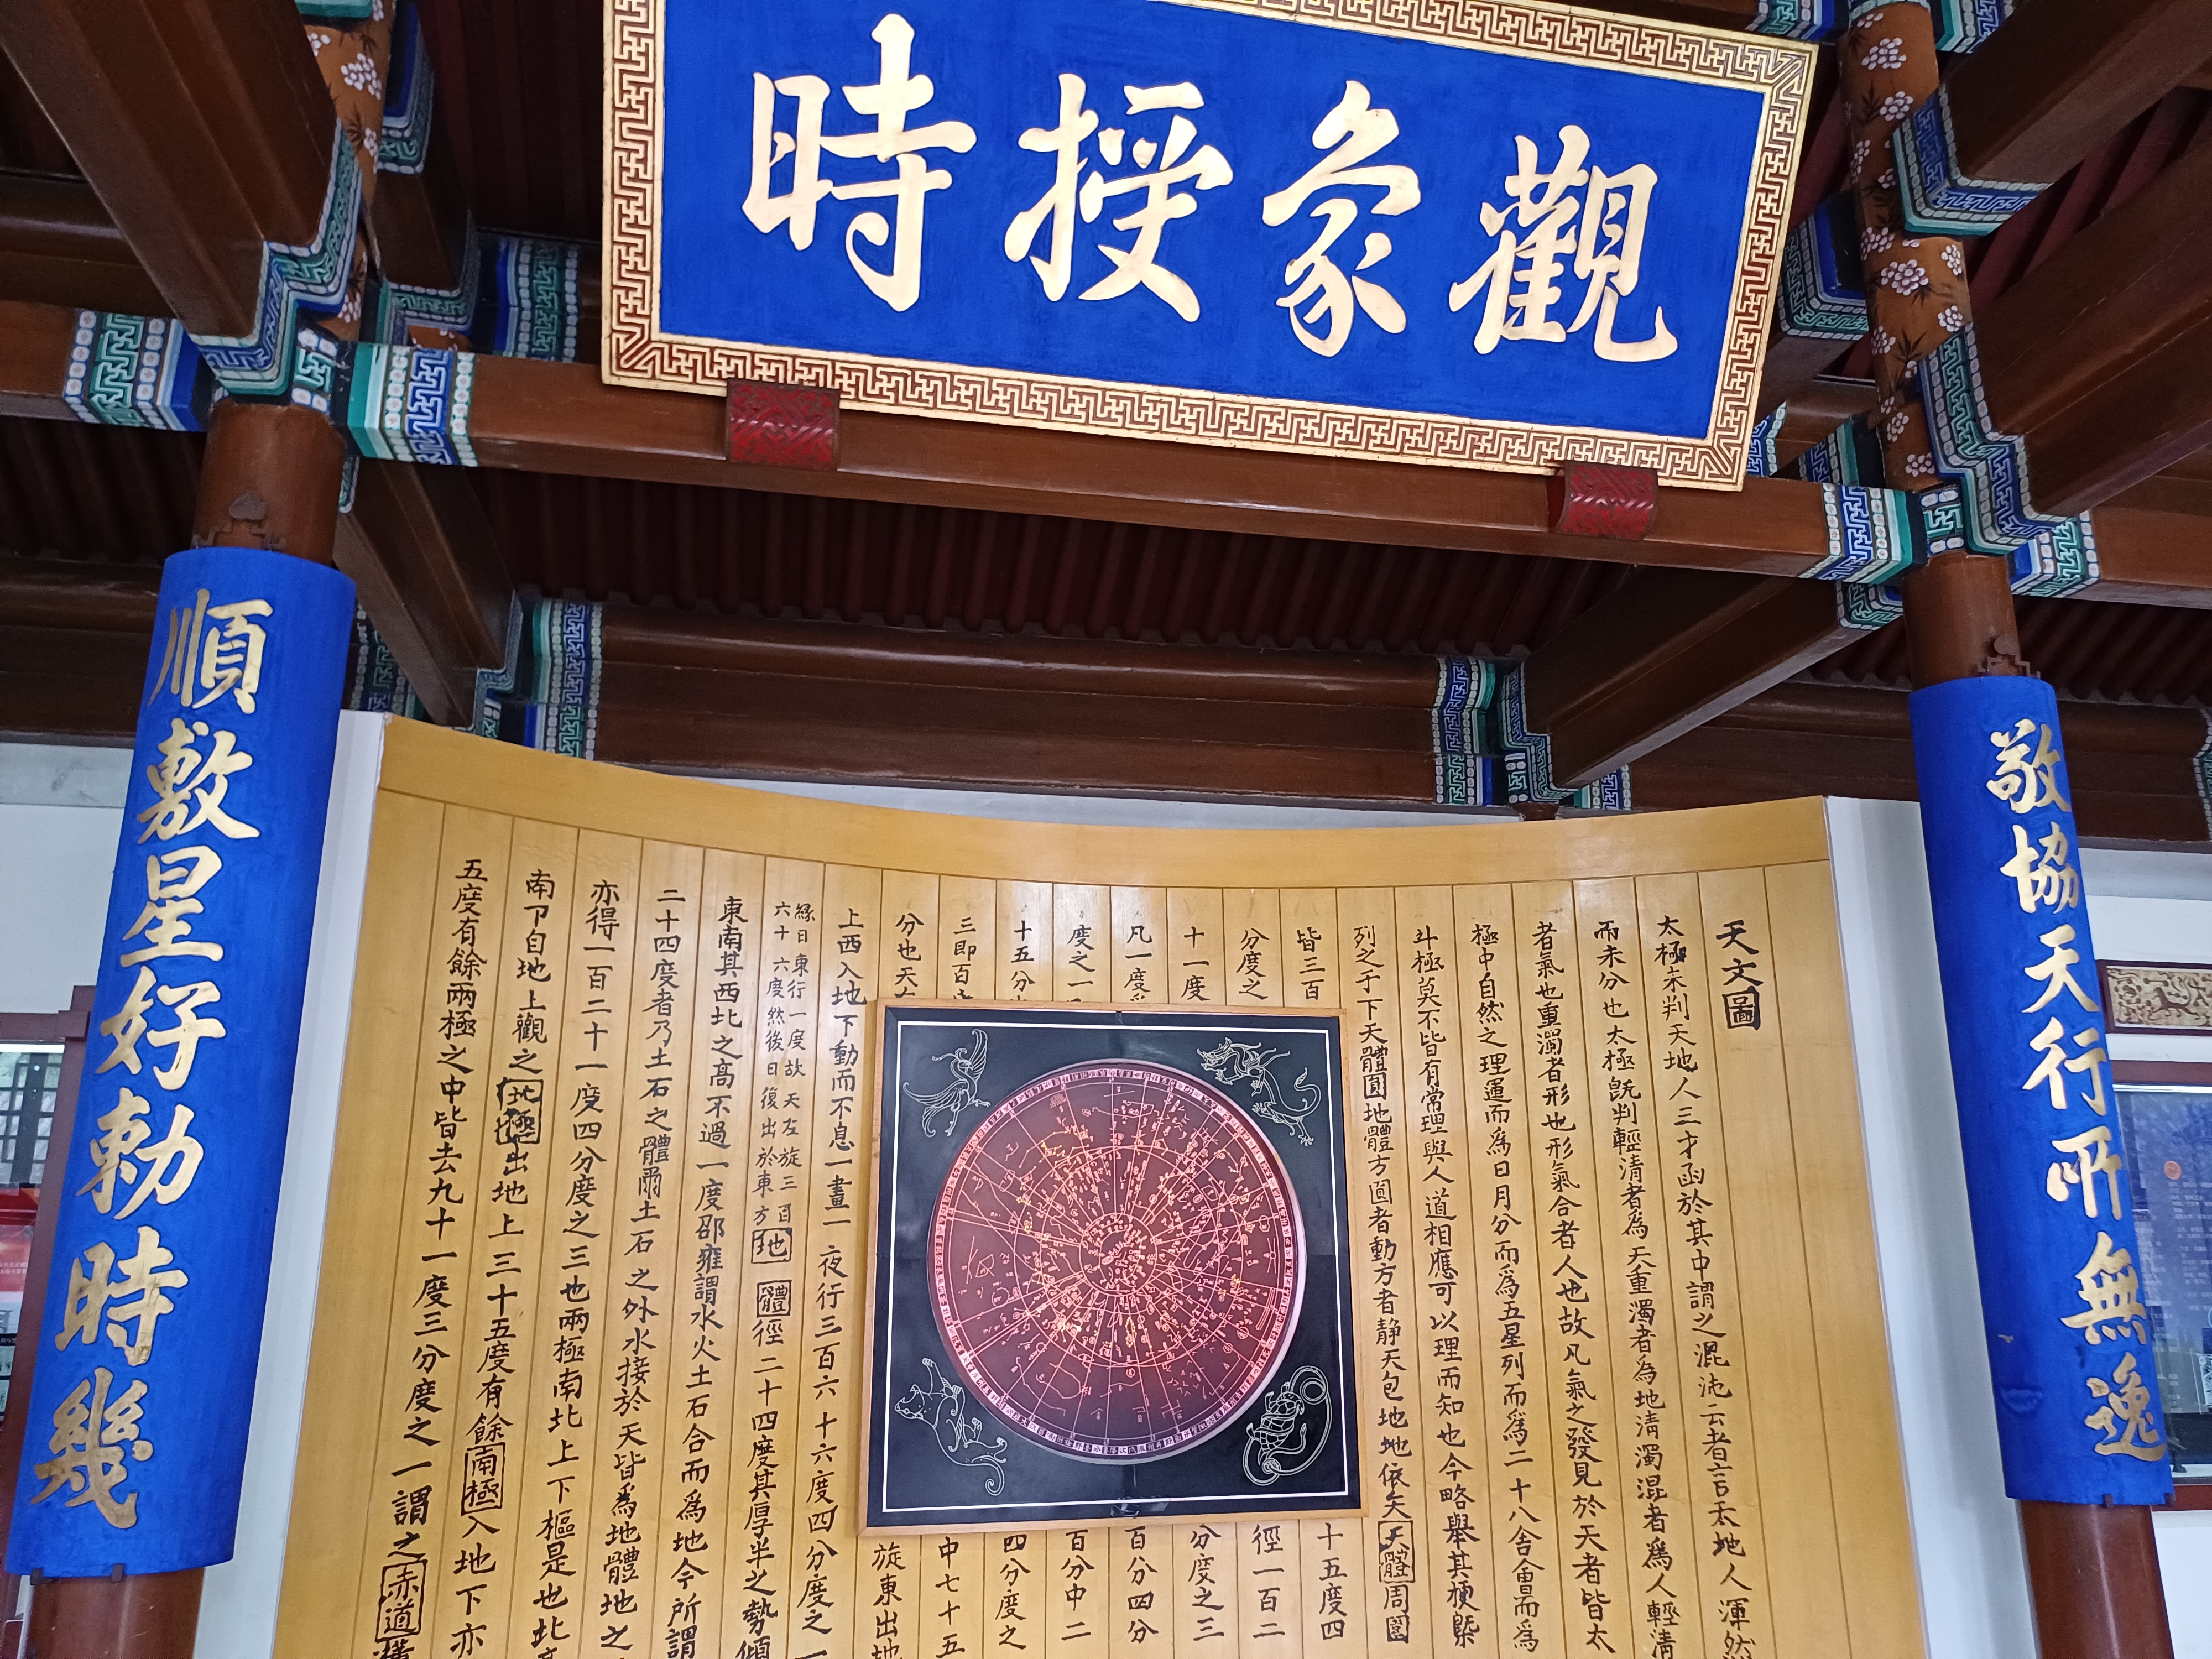 觀象授時
敬協天行所無逸
順敷星好勅時幾
天文圖
太極未判天地人三才函於其中謂之混沌云者言天地人渾然
而未分也太極旣判輕清者為天重濁者為地清濁混者爲人輕清
者氣也重濁者形也形氣合者人也故凡氣之發見於天者皆太
極中自然之理運而爲日月分而爲五星列而爲二十八舍
斗極莫不皆有常理與人道相應可以理而知也今略舉其梗槩
列之于下天體圓地體方圓者動方者静天包地地依天天體周圍
皆三百
十五度四
分度之
徑一百二
十一度
分度之三
凡一度
百分四分
度之一
百分中二
十五分
四分度之
三即百
中七十五
分也天
旋東出地
上西入地下動而不息一晝一夜行三百六十六度四分度之一
緣日東行一度故天左旋三百
六十六度然後日復出於東方
地體徑二十四度其厚半之勢傾
東南其西北之高不過一度邵雍謂水火土石合而爲地今所謂
二十四度者乃土石之體爾土石之外水接於天皆爲地體地之
亦得一百二十一度四分度之三也兩極南北上下樞是也北
南下自地上觀之北極出地上三十五度有餘南極入地下亦
五度有餘兩極之中皆去九十一度三分度之一謂之赤道橫